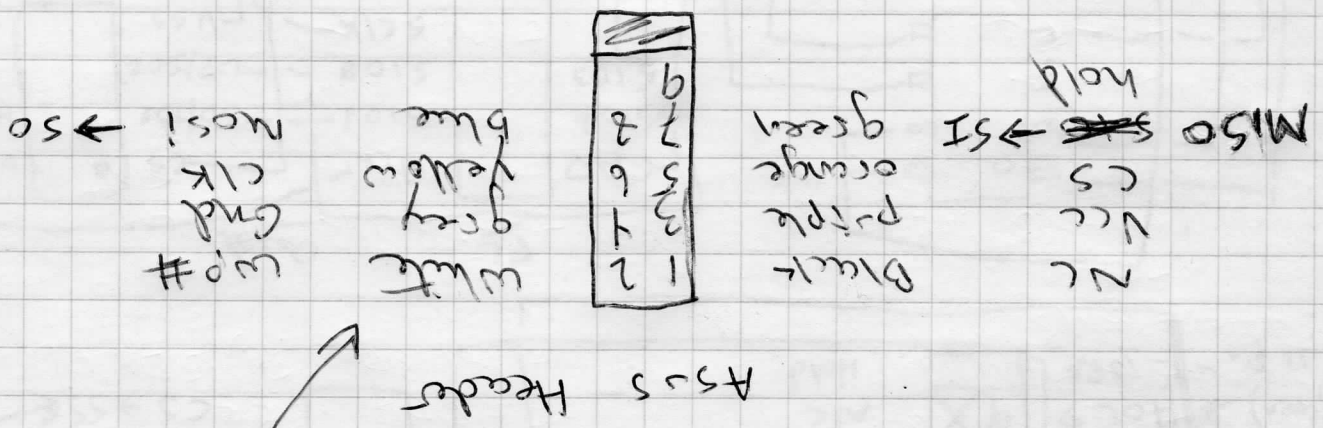 Asus Header
NC Black 1 2 white WP#
Vcc purple 3 4 grey Gnd
CS orange 5 6 yellow Clk
MISO → SI green 7 8 blue Mosi → SO
hold 9